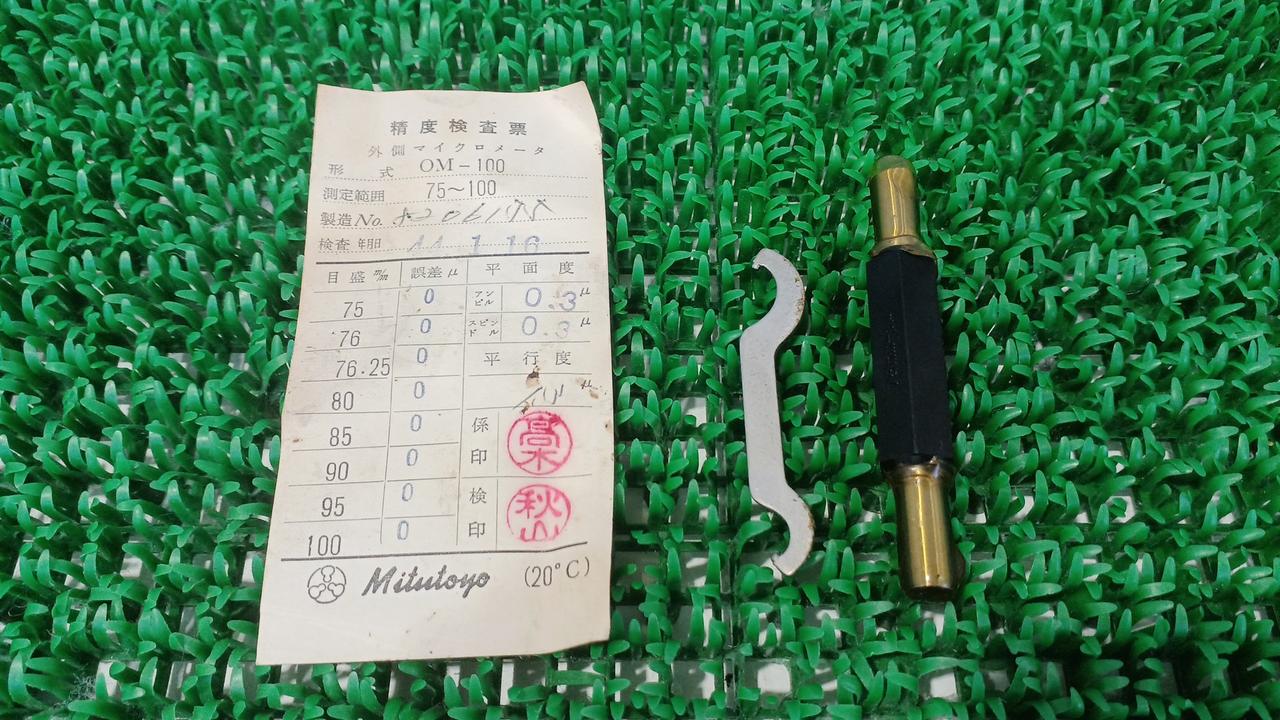 精度検査票
外側マイクロメータ
形式 OM-100
測定範囲 75～100
製造No.
検査年月日 1 16
目盛 m/m 誤差μ 平面度
75 0 アンビル 0.3μ
76 0 スピンドル 0.3μ
76.25 0 平行度
80 0 μ
85 0 係印 高木
90 0
95 0 検印 秋山
100 0
Mitutoyo (20°C)